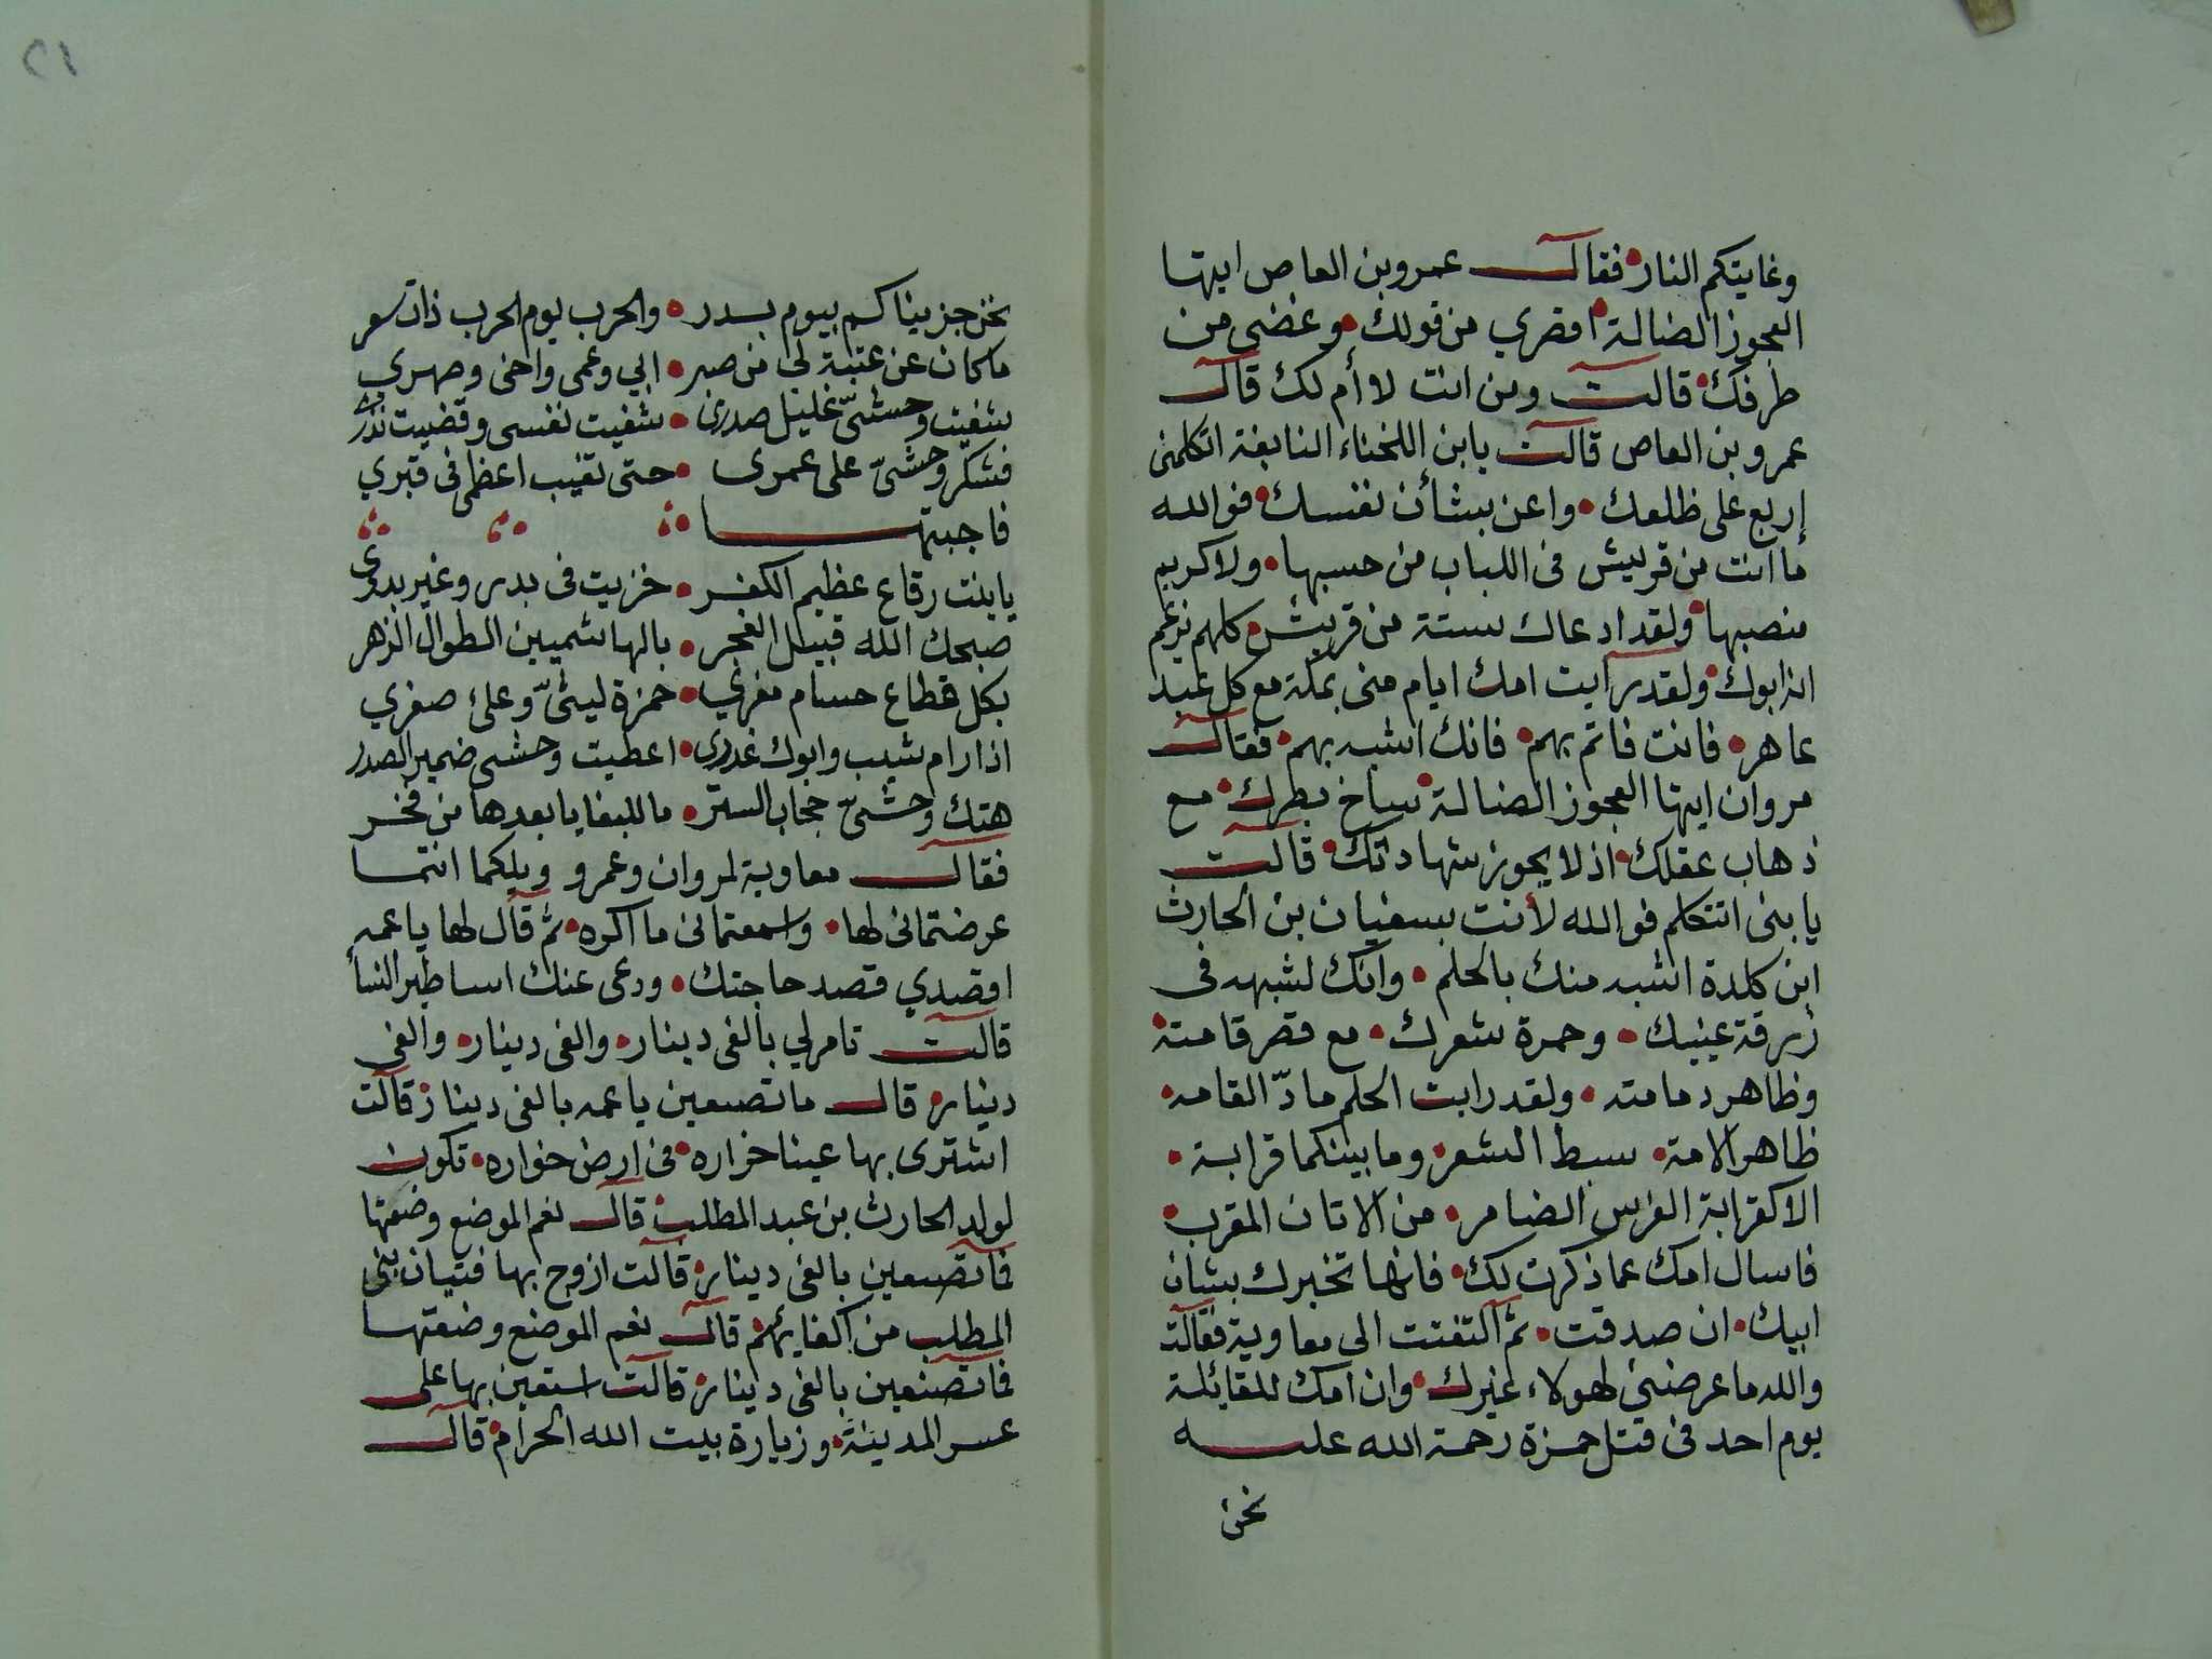 وغايتكم النار • فقالـــ عمرو بن العاص ايتها
العجوز الضالة • اقصري من قولك • وغضي من
طرفك • قالت ومن انت لا أم لك قالـ
عمرو بن العاص قالت يا ابن اللخناء النابغة اتكلمنى
إربع على ظلعك • واعن بشأن نفسك • فوالله
ما انت من قريش فى اللباب من حسبها • ولا كريم
منصبها • ولقد ادعاك ستة من قريش • كلهم يزعم
انه ابوك • ولقد رايت امك ايام منى بمكة مع كل عبد
عاهر • فانت فاتم بهم • فانك اشبه بهم • فقالـــ
مروان ايتها العجوز الضالة • ساخ بصرك • مع
ذهاب عقلك • اذ لا يجوز شهادتك • قالت
يا بنى اتتكلم فوالله لأنت بسفيان بن الحارث
ابن كلدة اشبه منك بالحكم • وانك لشبهه فى
زرقة عينيك • وحمرة شعرك • مع قصر قامته •
وظاهر دمامته • ولقد رايت الحكم مادّ القامه •
ظاهر الامة • سبط الشعر • وما بينكما قرابة •
الا كقرابة الفرس الضامر • من الاتان المقرب •
فاسال امك عما ذكرت لك • فانها تخبرك بشان
ابيك • ان صدقت • ثم التفتت الى معاوية فقالت
والله ما عرضنى لهولاء غيرك • وان امك للقائلة
يوم احد فى قتل حمزة رحمة الله عليـــه
نحن
٢١
نحن جزيناكم بيوم بدر • والحرب يوم الحرب ذات سعر
ما كان عن عتبة لى من صبر • ابي وعمى واخى وصهري
شفيت وحشىّ غليل صدرى • شفيت نفسى وقضيت نذرى
فشكر وحشىّ على عمرى • حتى تغيب اعظمى فى قبري
فاجبتهـــا
يا بنت رقاع عظيم الكفر • خزيت فى بدر وغير بدرى
صبحك الله قبيل الفجر • بالهاشميين الطوال الزهر
بكل قطاع حسام مفري • حمزة ليثىّ وعلىّ صقري
اذا رام شيب وابوك غدرى • اعطيت وحشى ضمير الصدر
هتك وحشىّ حجاب الستر • ما للبغايا بعدها من فخر
فقالـــ معاوية لمروان وعمرو ويلكما انتما
عرضتمانى لها • واسمعتمانى ما اكره • ثم قال لها يا عمه
اقصدي قصد حاجتك • ودعى عنك اساطير النسأ
قالت تامر لي بالفى دينار • والفى دينار • والفى
دينار • قالـــ ما تصنعين يا عمه بالفى دينار • قالت
اشترى بها عينا خراره • فى ارض خواره • تكون
لولد الحارث بن عبد المطلب • قالـ نعم الموضع وضعتها
فما تصنعين بالفى دينار • قالت ازوج بها فتيان بنى
المطلب من اكفايهم • قالـ نعم الموضع وضعتها
فما تصنعين بالفى دينار • قالت استعين بها على
عسر المدينة • وزيارة بيت الله الحرام • قالـــ